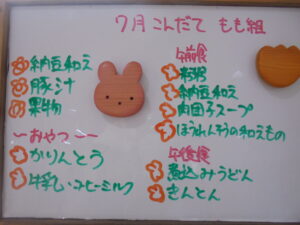 7月こんだて もも組
納豆和え
豚汁
果物
〜おやつ〜
かりんとう
牛乳・コーヒーミルク
午前食
粥
納豆和え
肉団子スープ
ほうれんそうの和えもの
午後食
煮込みうどん
きんとん